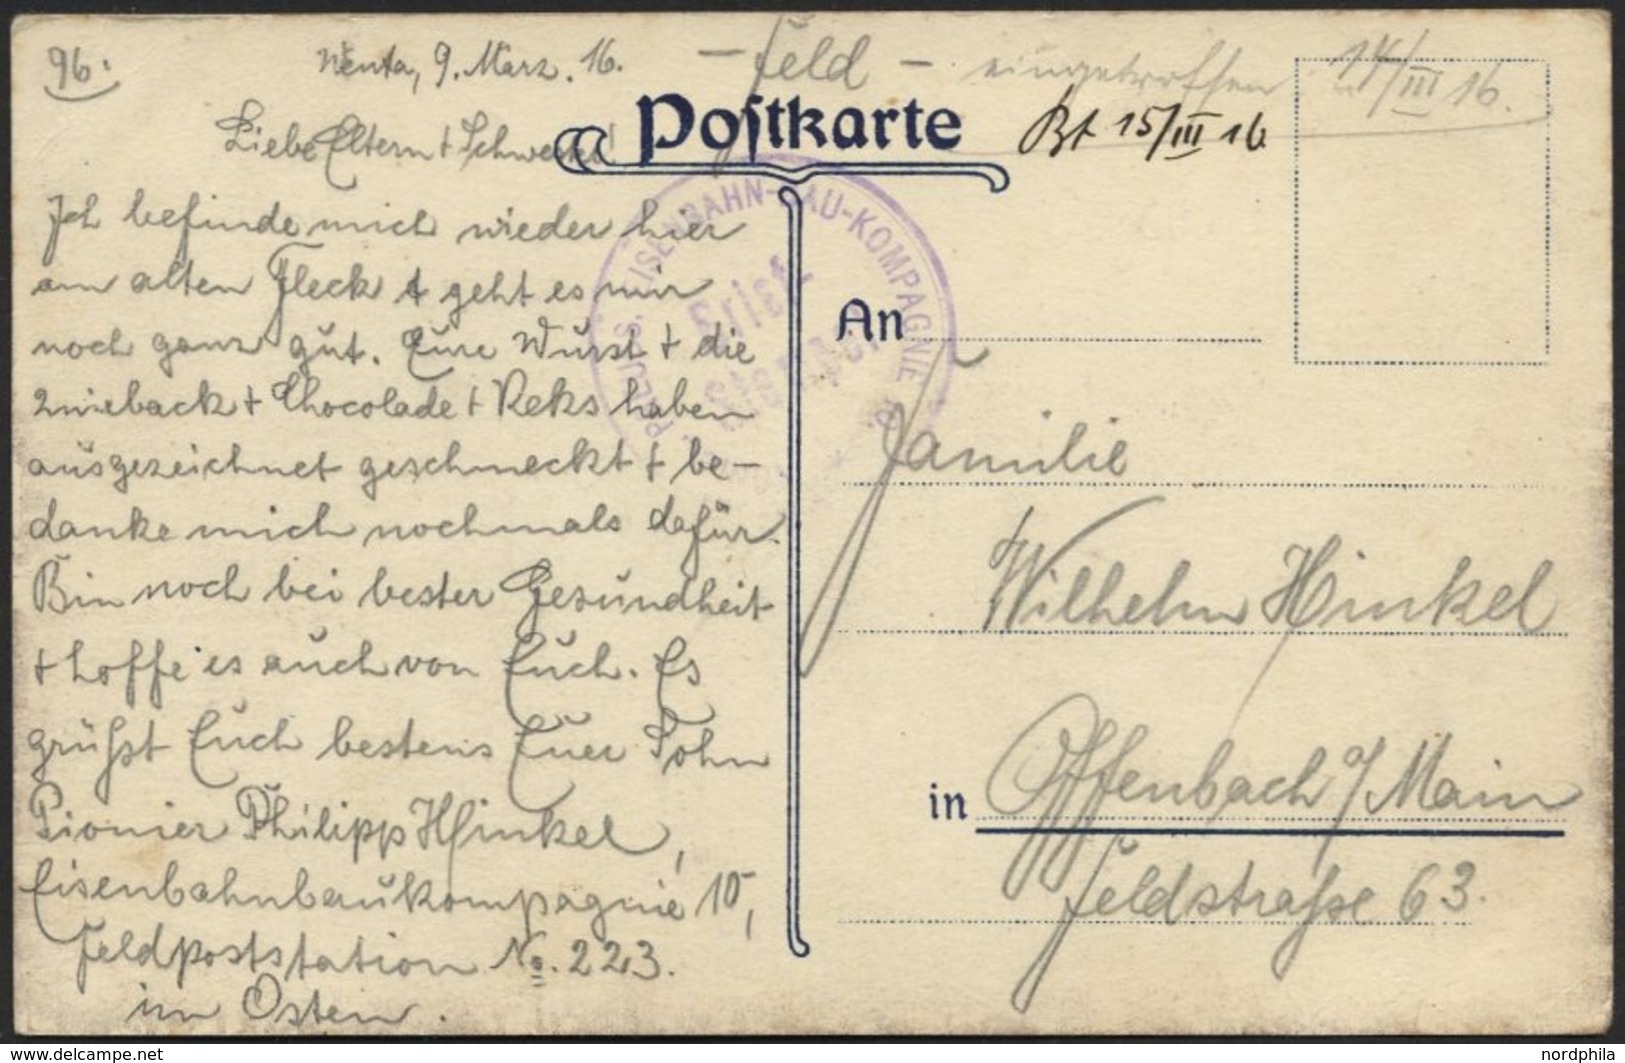 96.
Wenta, 9. März. 16.
- Feld -
eingetroffen 14/III 16.
Postkarte
Bt 15/III 16
Liebe Eltern + Schwester!
Ich befinde mich wieder hier
am alten Fleck + geht es mir
noch ganz gut. Eure Wurst + die
Zwieback + Chocolade + Keks haben
ausgezeichnet geschmeckt + be-
danke mich nochmals dafür.
Bin noch bei bester Gesundheit
+ hoffe es auch von Euch. Es
grüßt Euch bestens Euer Sohn
Pionier Philipp Hinkel,
Eisenbahnbaukompagnie 10,
Feldpoststation No. 223.
im Osten.
PREUS. EISENBAHN-BAU-KOMPAGNIE
Brief-
stempel
An
Familie
Wilhelm Hinkel
in Offenbach a/Main
Feldstraße 63.
www.delcampe.net
nordphila